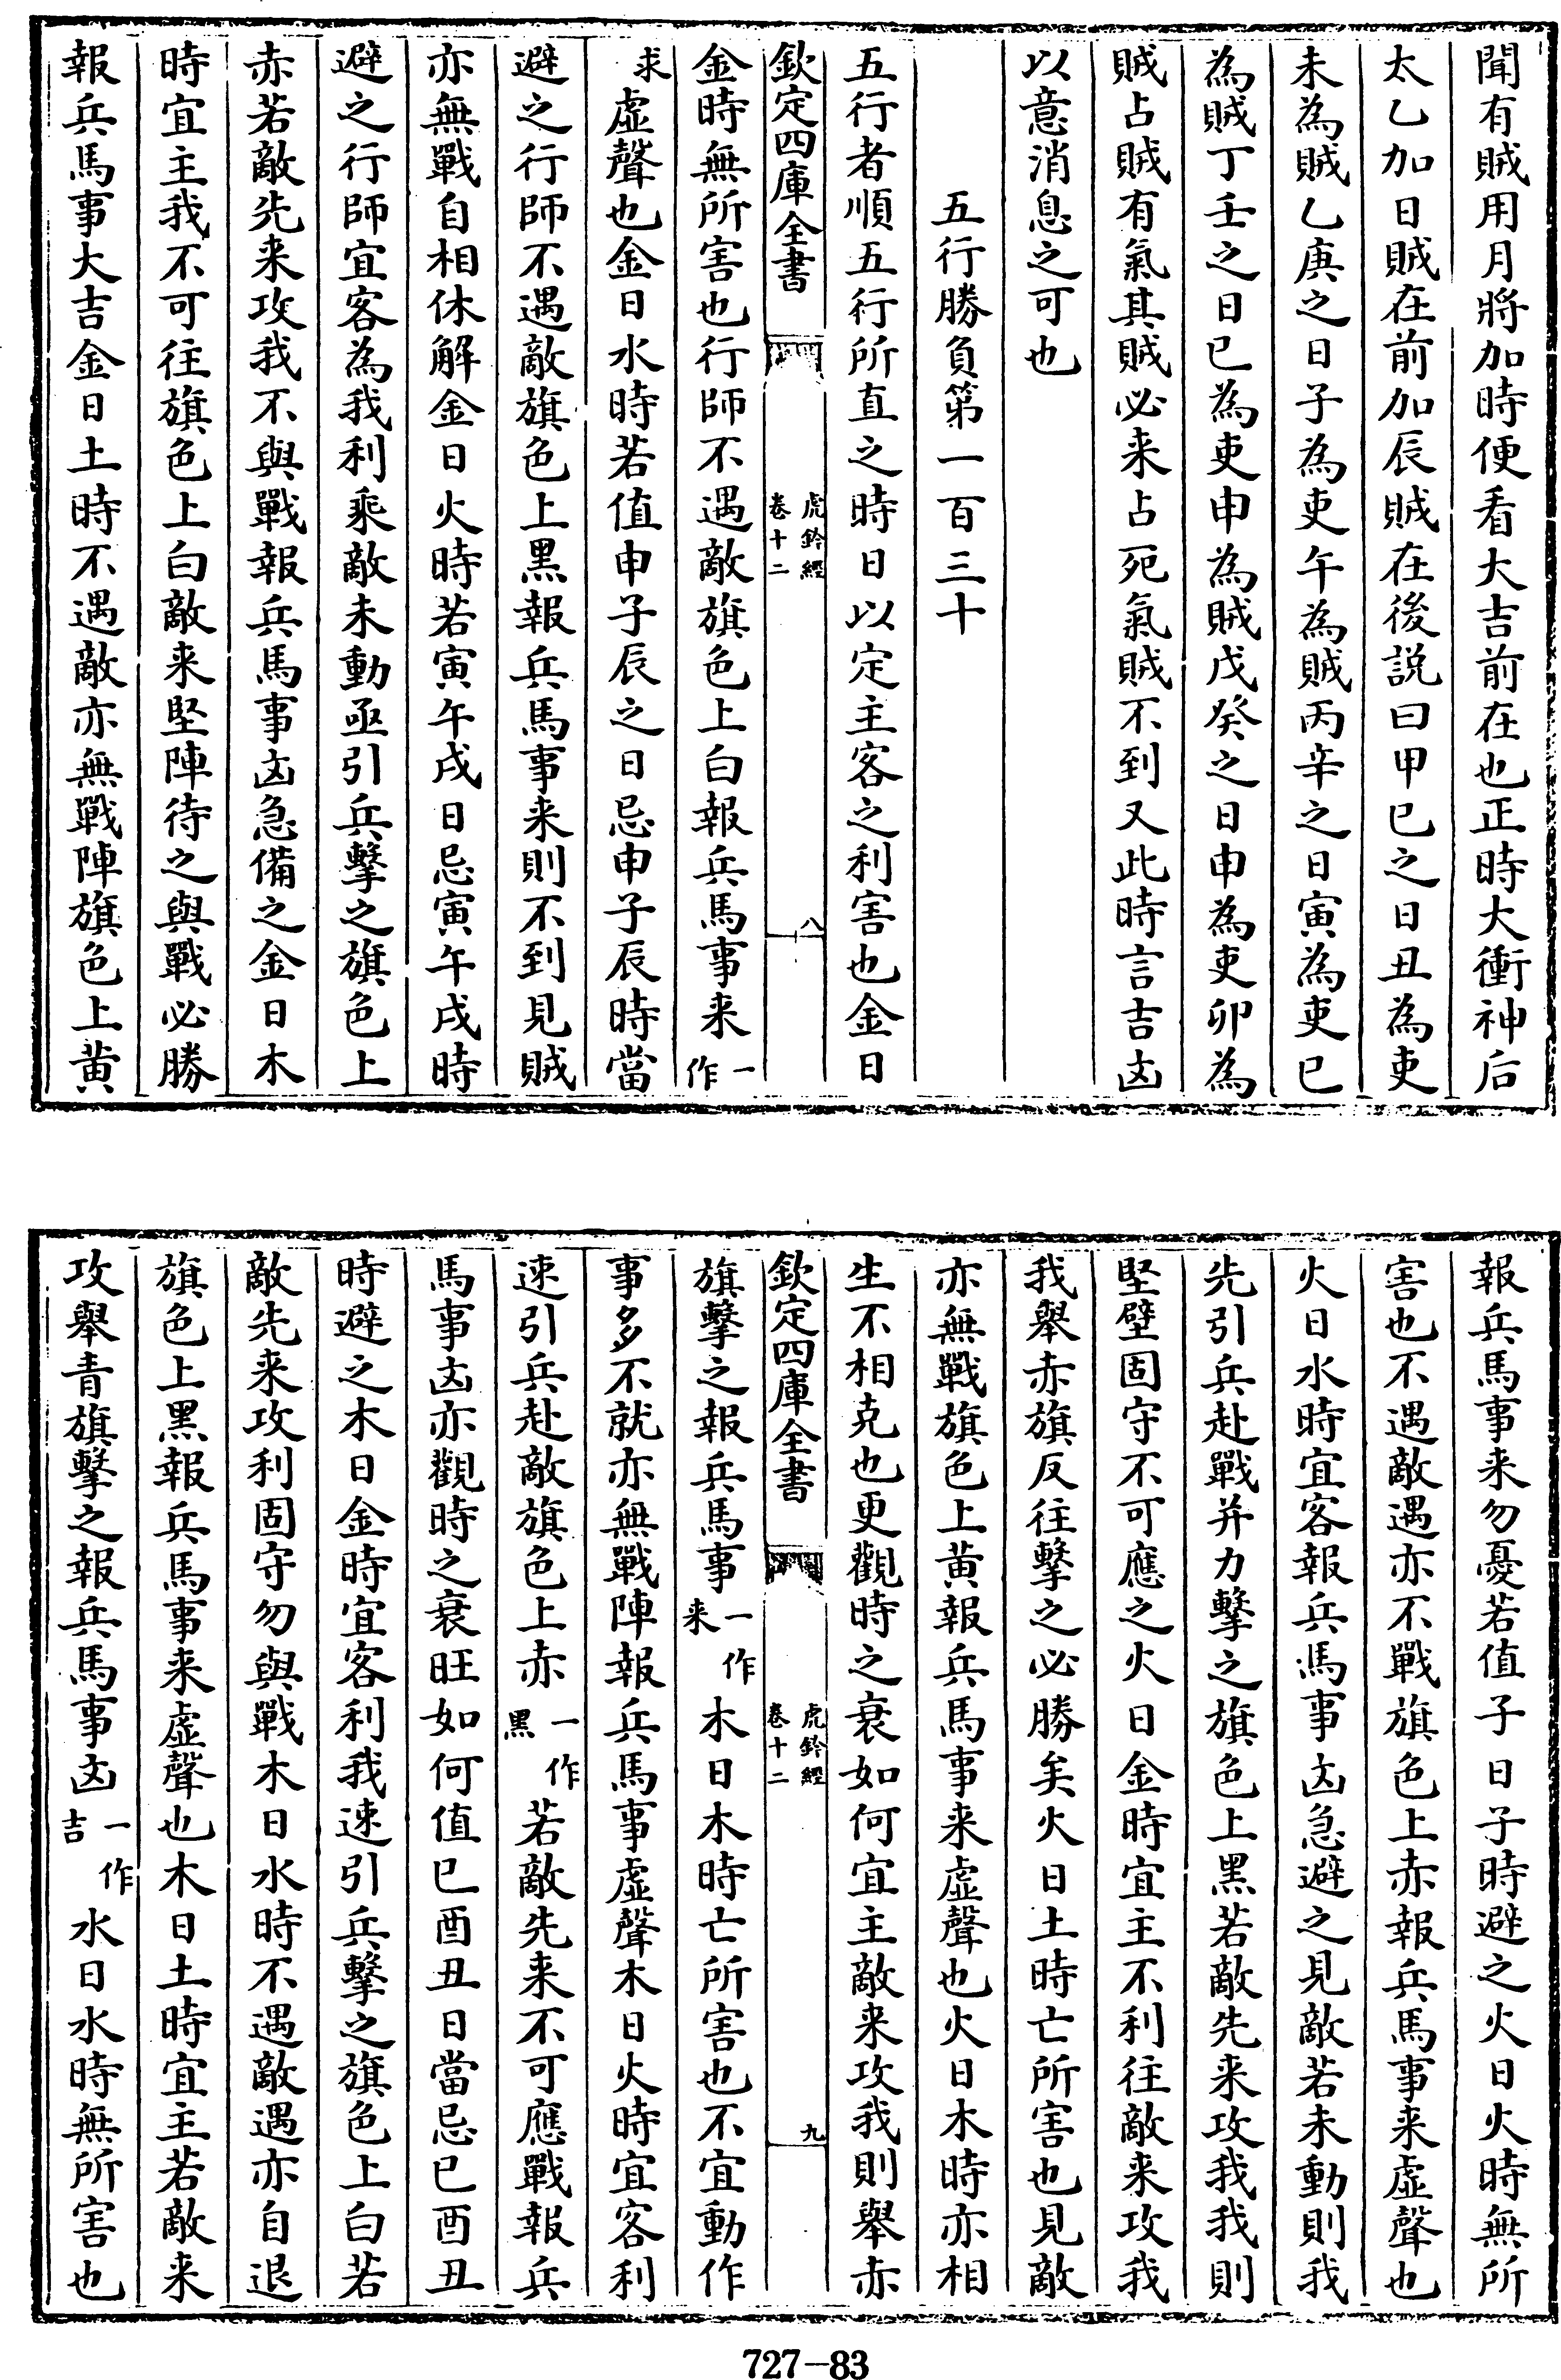 聞有賊用月將加時便看大吉前在也正時大衝神后
太乙加日賊在前加辰賊在後説曰甲已之日丑為吏
未為賊乙庚之日子為吏午為賊丙辛之日寅為吏已
為賊丁壬之日已為吏申為賊戊癸之日申為吏卯為
賊占賊有氣其賊必来占死氣賊不到又此時言吉凶
以意消息之可也
五行勝負第一百三十
五行者順五行所直之時日以定主客之利害也金日
欽定四庫全書
虎鈐經
卷十二
八
金時無所害也行師不遇敵旗色上白報兵馬事来一作
求虛聲也金日水時若值申子辰之日忌申子辰時當
避之行師不遇敵旗色上黑報兵馬事来則不到見賊
亦無戰自相休解金日火時若寅午戌日忌寅午戌時
避之行師宜客為我利乘敵未動亟引兵擊之旗色上
赤若敵先来攻我不與戰報兵馬事凶急備之金日木
時宜主我不可往旗色上白敵来堅陣待之與戰必勝
報兵馬事大吉金日土時不遇敵亦無戰陣旗色上黄
報兵馬事来勿憂若值子日子時避之火日火時無所
害也不遇敵遇亦不戰旗色上赤報兵馬事来虛聲也
火日水時宜客報兵馬事凶急避之見敵若未動則我
先引兵赴戰并力擊之旗色上黑若敵先来攻我我則
堅壁固守不可應之火日金時宜主不利往敵来攻我
我舉赤旗反往擊之必勝矣火日土時亡所害也見敵
亦無戰旗色上黄報兵馬事来虛聲也火日木時亦相
生不相克也更觀時之衰如何宜主敵来攻我則舉赤
欽定四庫全書
虎鈐經
卷十二
九
旗擊之報兵馬事一作来木日木時亡所害也不宜動作
事多不就亦無戰陣報兵馬事虛聲木日火時宜客利
速引兵赴敵旗色上赤一作黑若敵先来不可應戰報兵
馬事凶亦觀時之衰旺如何值已酉丑日當忌已酉丑
時避之木日金時宜客利我速引兵擊之旗色上白若
敵先来攻利固守勿與戰木日水時不遇敵遇亦自退
旗色上黑報兵馬事来虛聲也木日土時宜主若敵来
攻舉青旗擊之報兵馬事凶一作吉水日水時無所害也
727—83